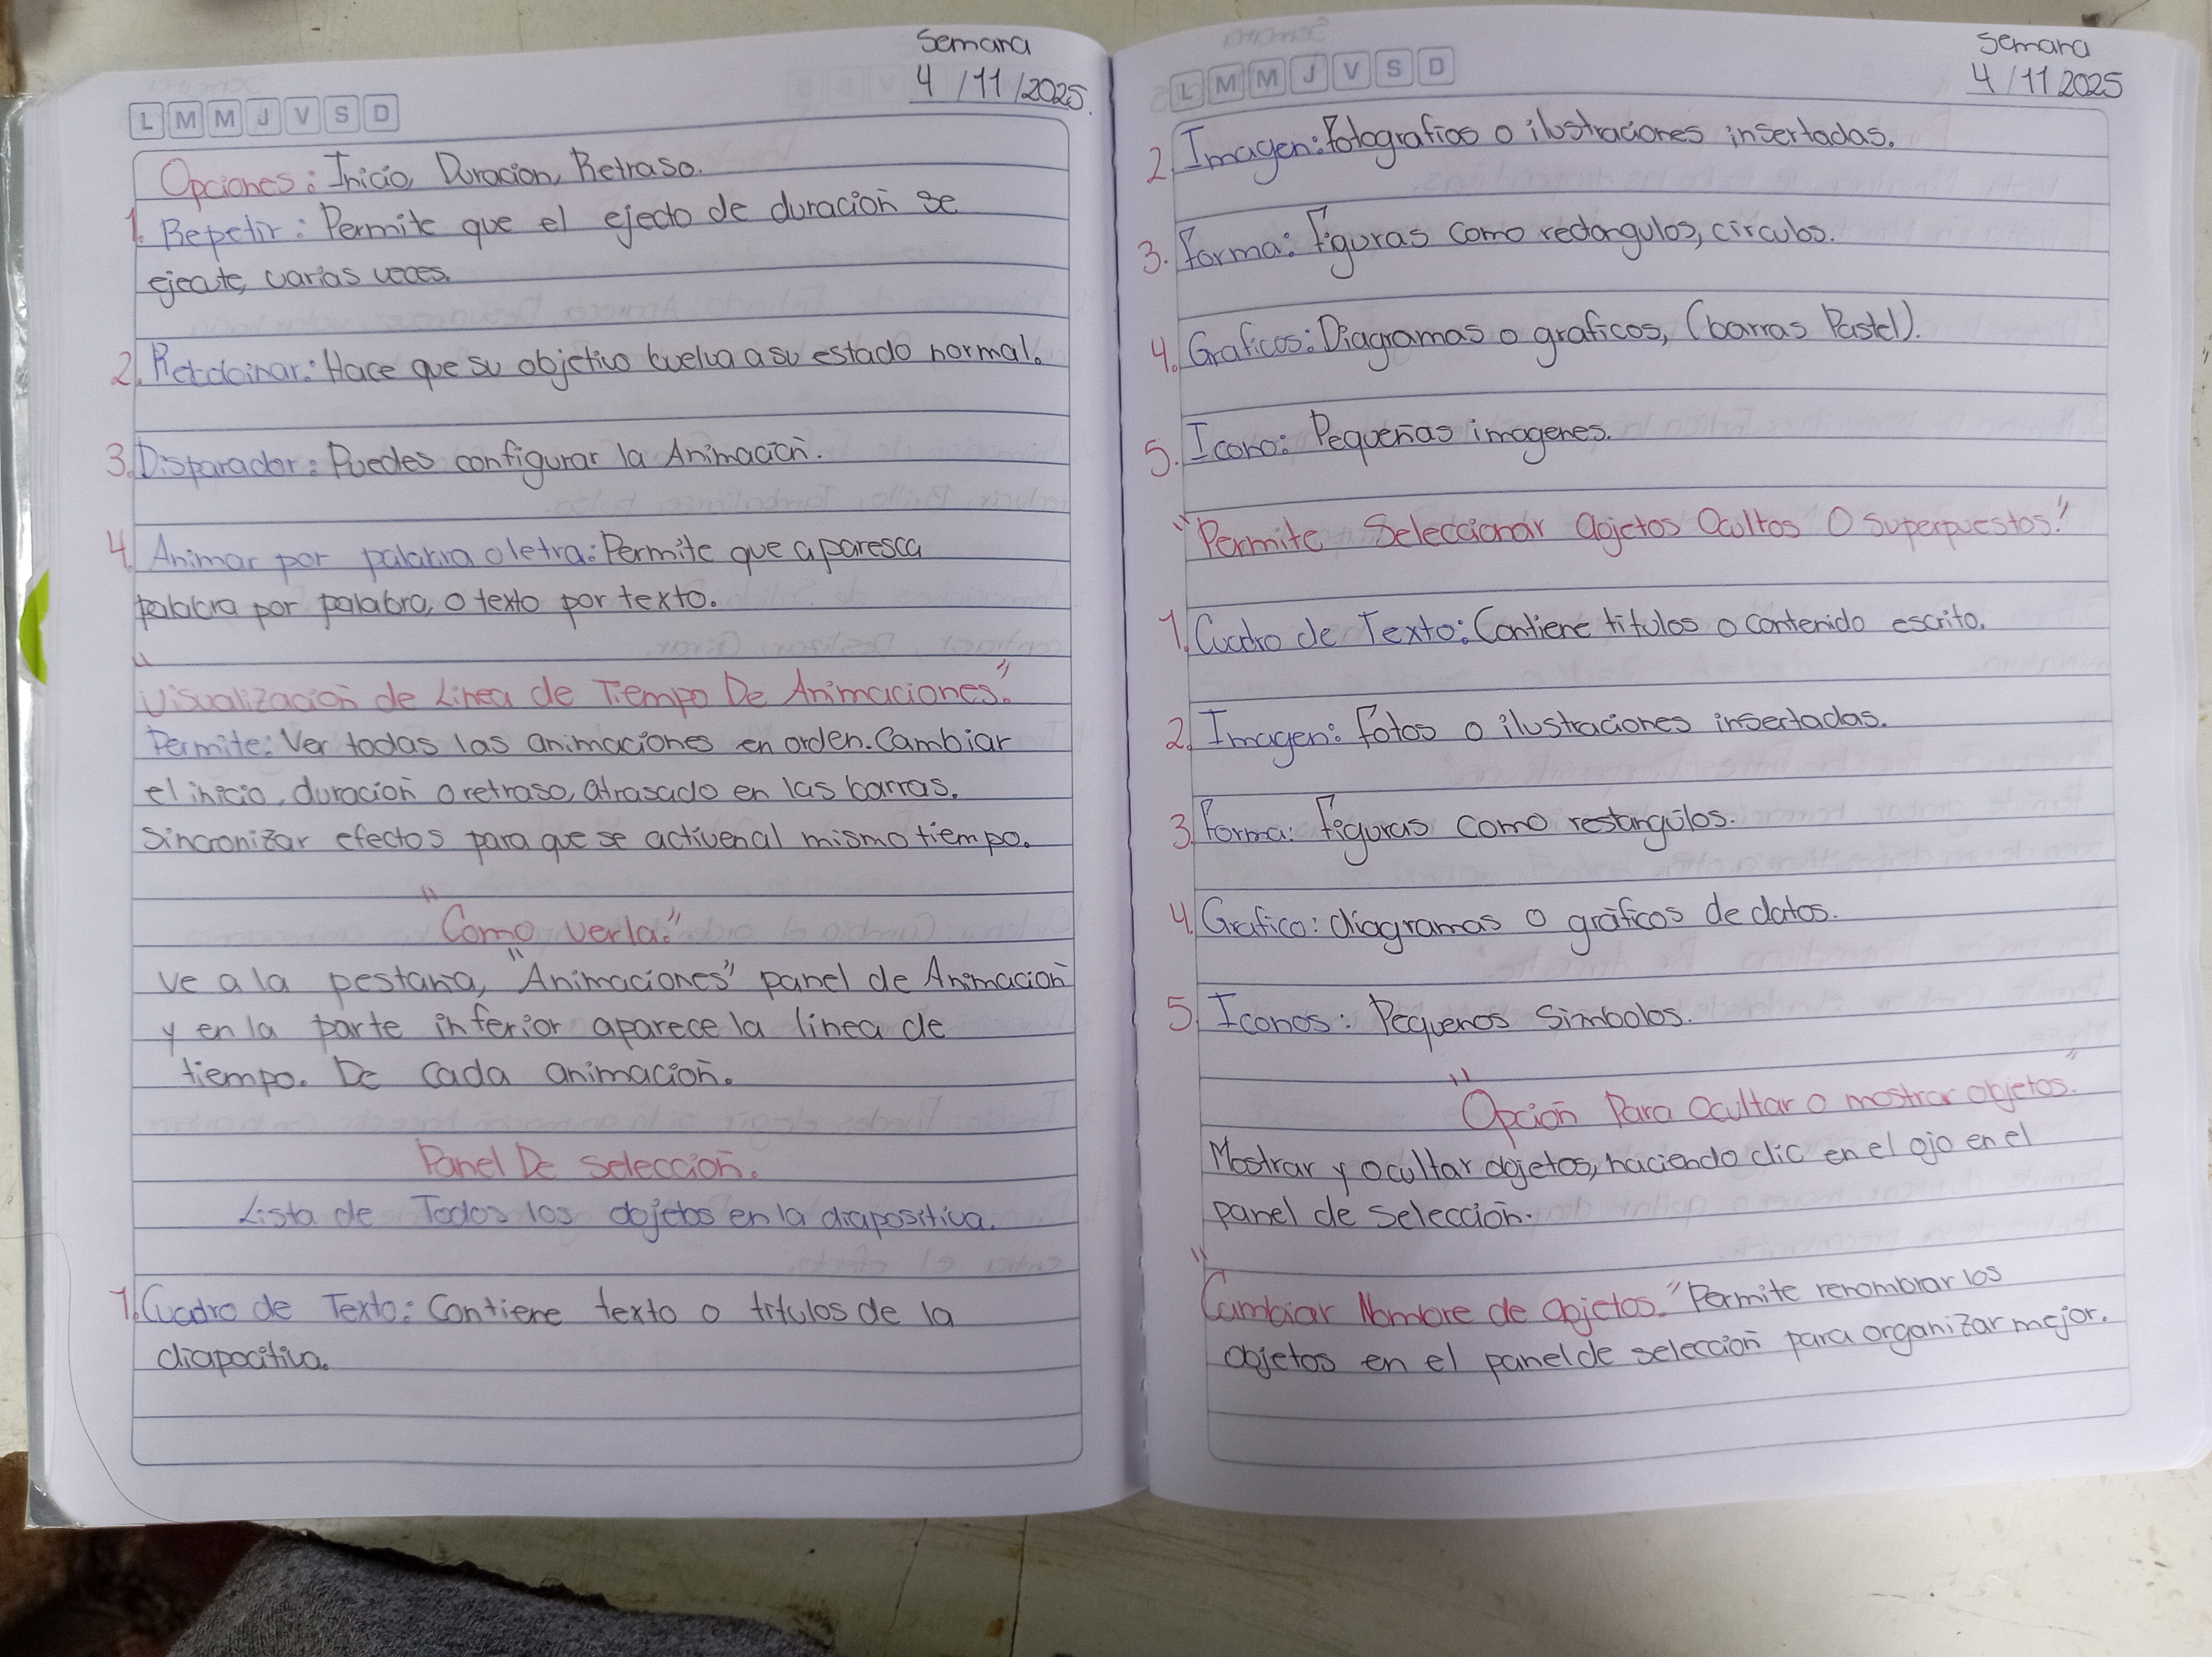 Semana
4/11/2025.
L M M J V S D
Opciones: Inicio, Duracion, Retraso.
1. Repetir: Permite que el ejecto de duración se
ejecute, varias veces.
2. Hace que su objetivo buelva a su estado normal.
3. Disparador: Puedes configurar la Animación.
4. Animar por palabra o letra: Permite que aparesca
palabra por palabra, o texto por texto.
"Visualización de Linea de Tiempo De Animaciones."
Permite: Ver todas las animaciones en orden. Cambiar
el inicio, duración o retraso, atrasado en las barras.
Sincronizar efectos para que se activen al mismo tiempo.
"Como verla."
ve a la pestana, "Animaciones" panel de Animación
y en la parte inferior aparece la linea de
tiempo. De cada animación.
Panel De Selección.
Lista de Todos los objetos en la diapositiva.
1. Cuadro de Texto: Contiene texto o titulos de la
diapocitiva.
Semana
4/11 2025
L M M J V S D
2. Imagen: Fotografias o ilustraciones insertadas.
3. Forma: Figuras como redangulos, circulos.
4. Graficos: Diagramas o graficos, (barras Pastel).
5. Icono: Pequeñas imagenes.
"Permite Seleccionar Objetos Ocultos O Superpuestos."
1. Cuadro de Texto: Contiene titulos o contenido escrito.
2. Imagen: Fotos o ilustraciones insertadas.
3. Forma: Figuras como restangulos.
4. Grafico: diagramas o gráficos de datos.
5. Iconos: Pequenos Simbolos.
"Opción Para Ocultar o mostrar objetos."
Mostrar y ocultar objetos, haciendo clic en el ojo en el
panel de Selección.
"Cambiar Nombre de Objetos." Permite renombrar los
objetos en el panel de selección para organizar mejor.